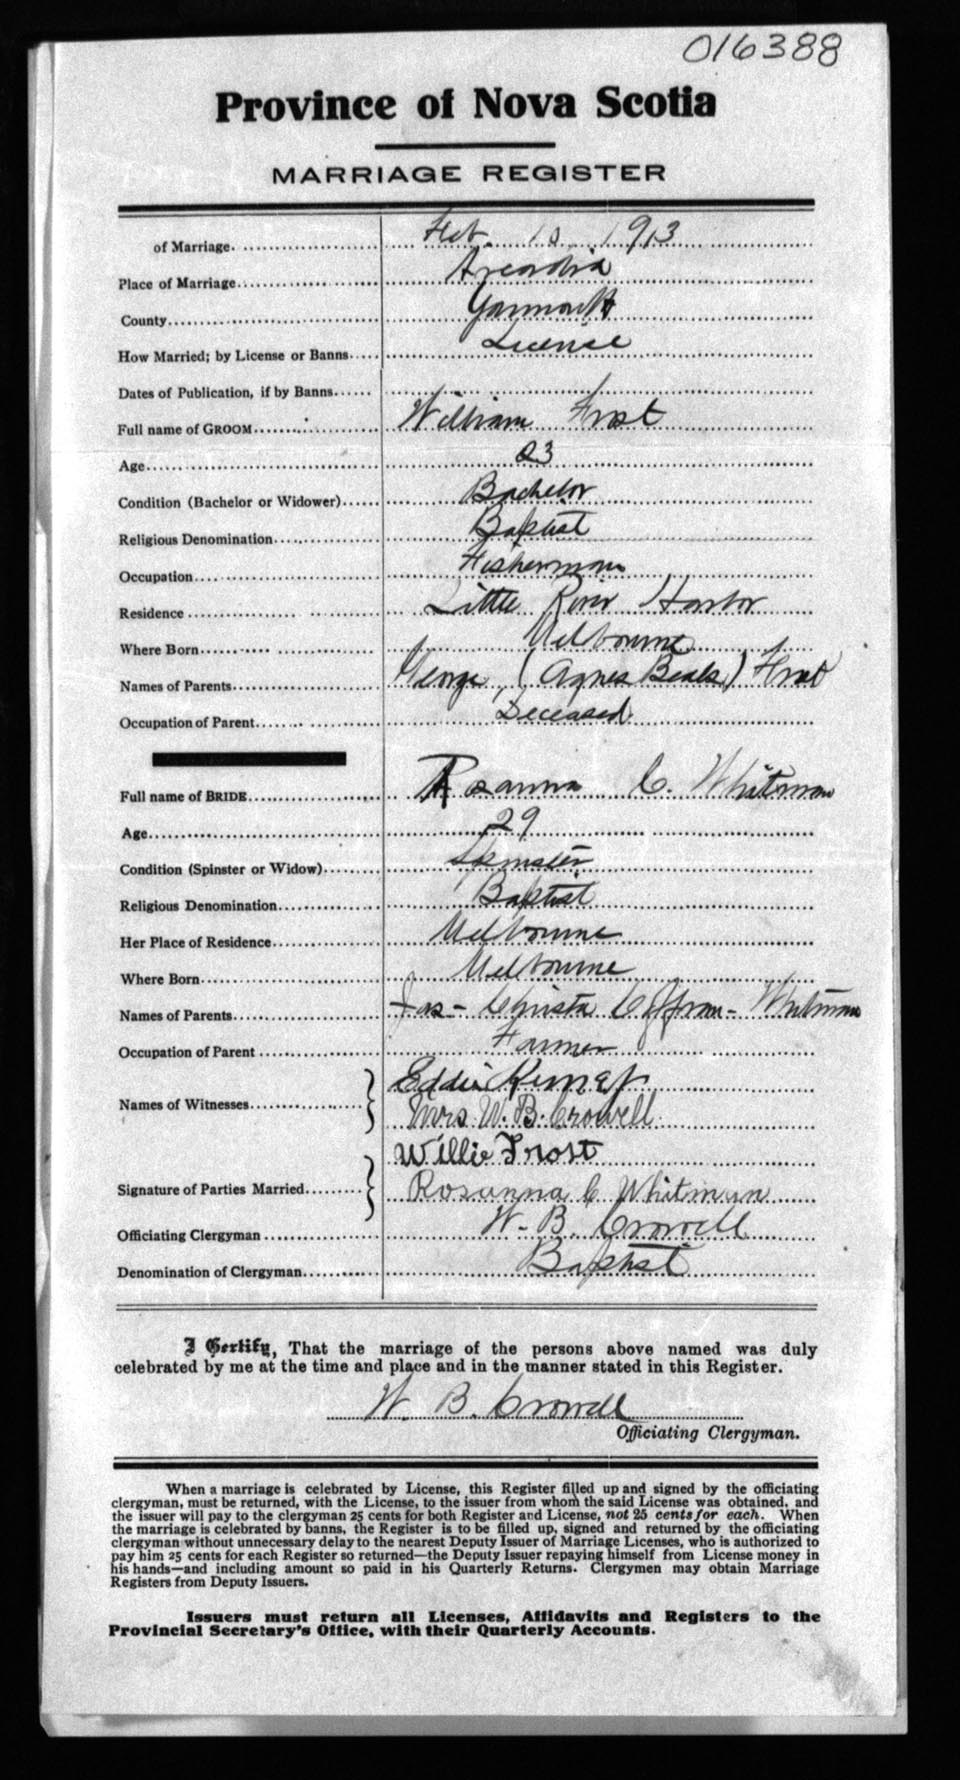 016388
Province of Nova Scotia
MARRIAGE REGISTER
of Marriage. Feb. 10, 1913
Place of Marriage Arcadia
County Yarmouth
How Married; by License or Banns License
Dates of Publication, if by Banns
Full name of GROOM William Frost
Age 23
Condition (Bachelor or Widower) Bachelor
Religious Denomination Baptist
Occupation Fisherman
Residence Little River Harbor
Where Born Melbourne
Names of Parents George, (Agnes Beals) Frost
Occupation of Parent Deceased
Full name of BRIDE Rosanna C. Whitman
Age 29
Condition (Spinster or Widow) Spinster
Religious Denomination Baptist
Her Place of Residence Melbourne
Where Born Melbourne
Names of Parents Jas - Whitman
Occupation of Parent Farmer
Names of Witnesses Eddie
Mrs W. B. Crowell
Willie Frost
Signature of Parties Married Rosanna C Whitman
Officiating Clergyman W. B. Crowell
Denomination of Clergyman Baptist
I Certify, That the marriage of the persons above named was duly
celebrated by me at the time and place and in the manner stated in this Register.
W. B. Crowell
Officiating Clergyman.
When a marriage is celebrated by License, this Register filled up and signed by the officiating
clergyman, must be returned, with the License, to the issuer from whom the said License was obtained, and
the issuer will pay to the clergyman 25 cents for both Register and License, not 25 cents for each. When
the marriage is celebrated by banns, the Register is to be filled up, signed and returned by the officiating
clergyman without unnecessary delay to the nearest Deputy Issuer of Marriage Licenses, who is authorized to
pay him 25 cents for each Register so returned—the Deputy Issuer repaying himself from License money in
his hands—and including amount so paid in his Quarterly Returns. Clergymen may obtain Marriage
Registers from Deputy Issuers.
Issuers must return all Licenses, Affidavits and Registers to the
Provincial Secretary's Office, with their Quarterly Accounts.